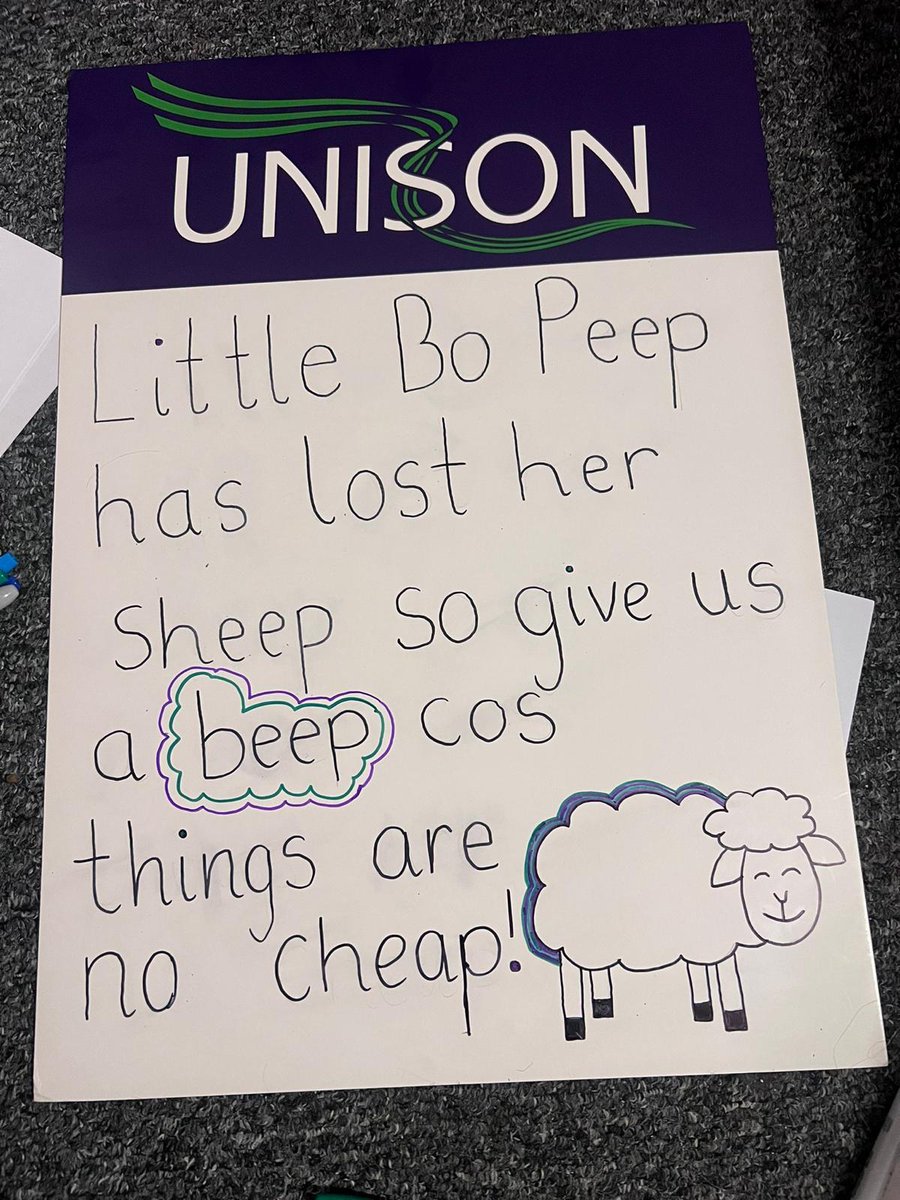 UNISON
Little Bo Peep
has lost her
Sheep so give us
a beep cos
things are
no cheap!